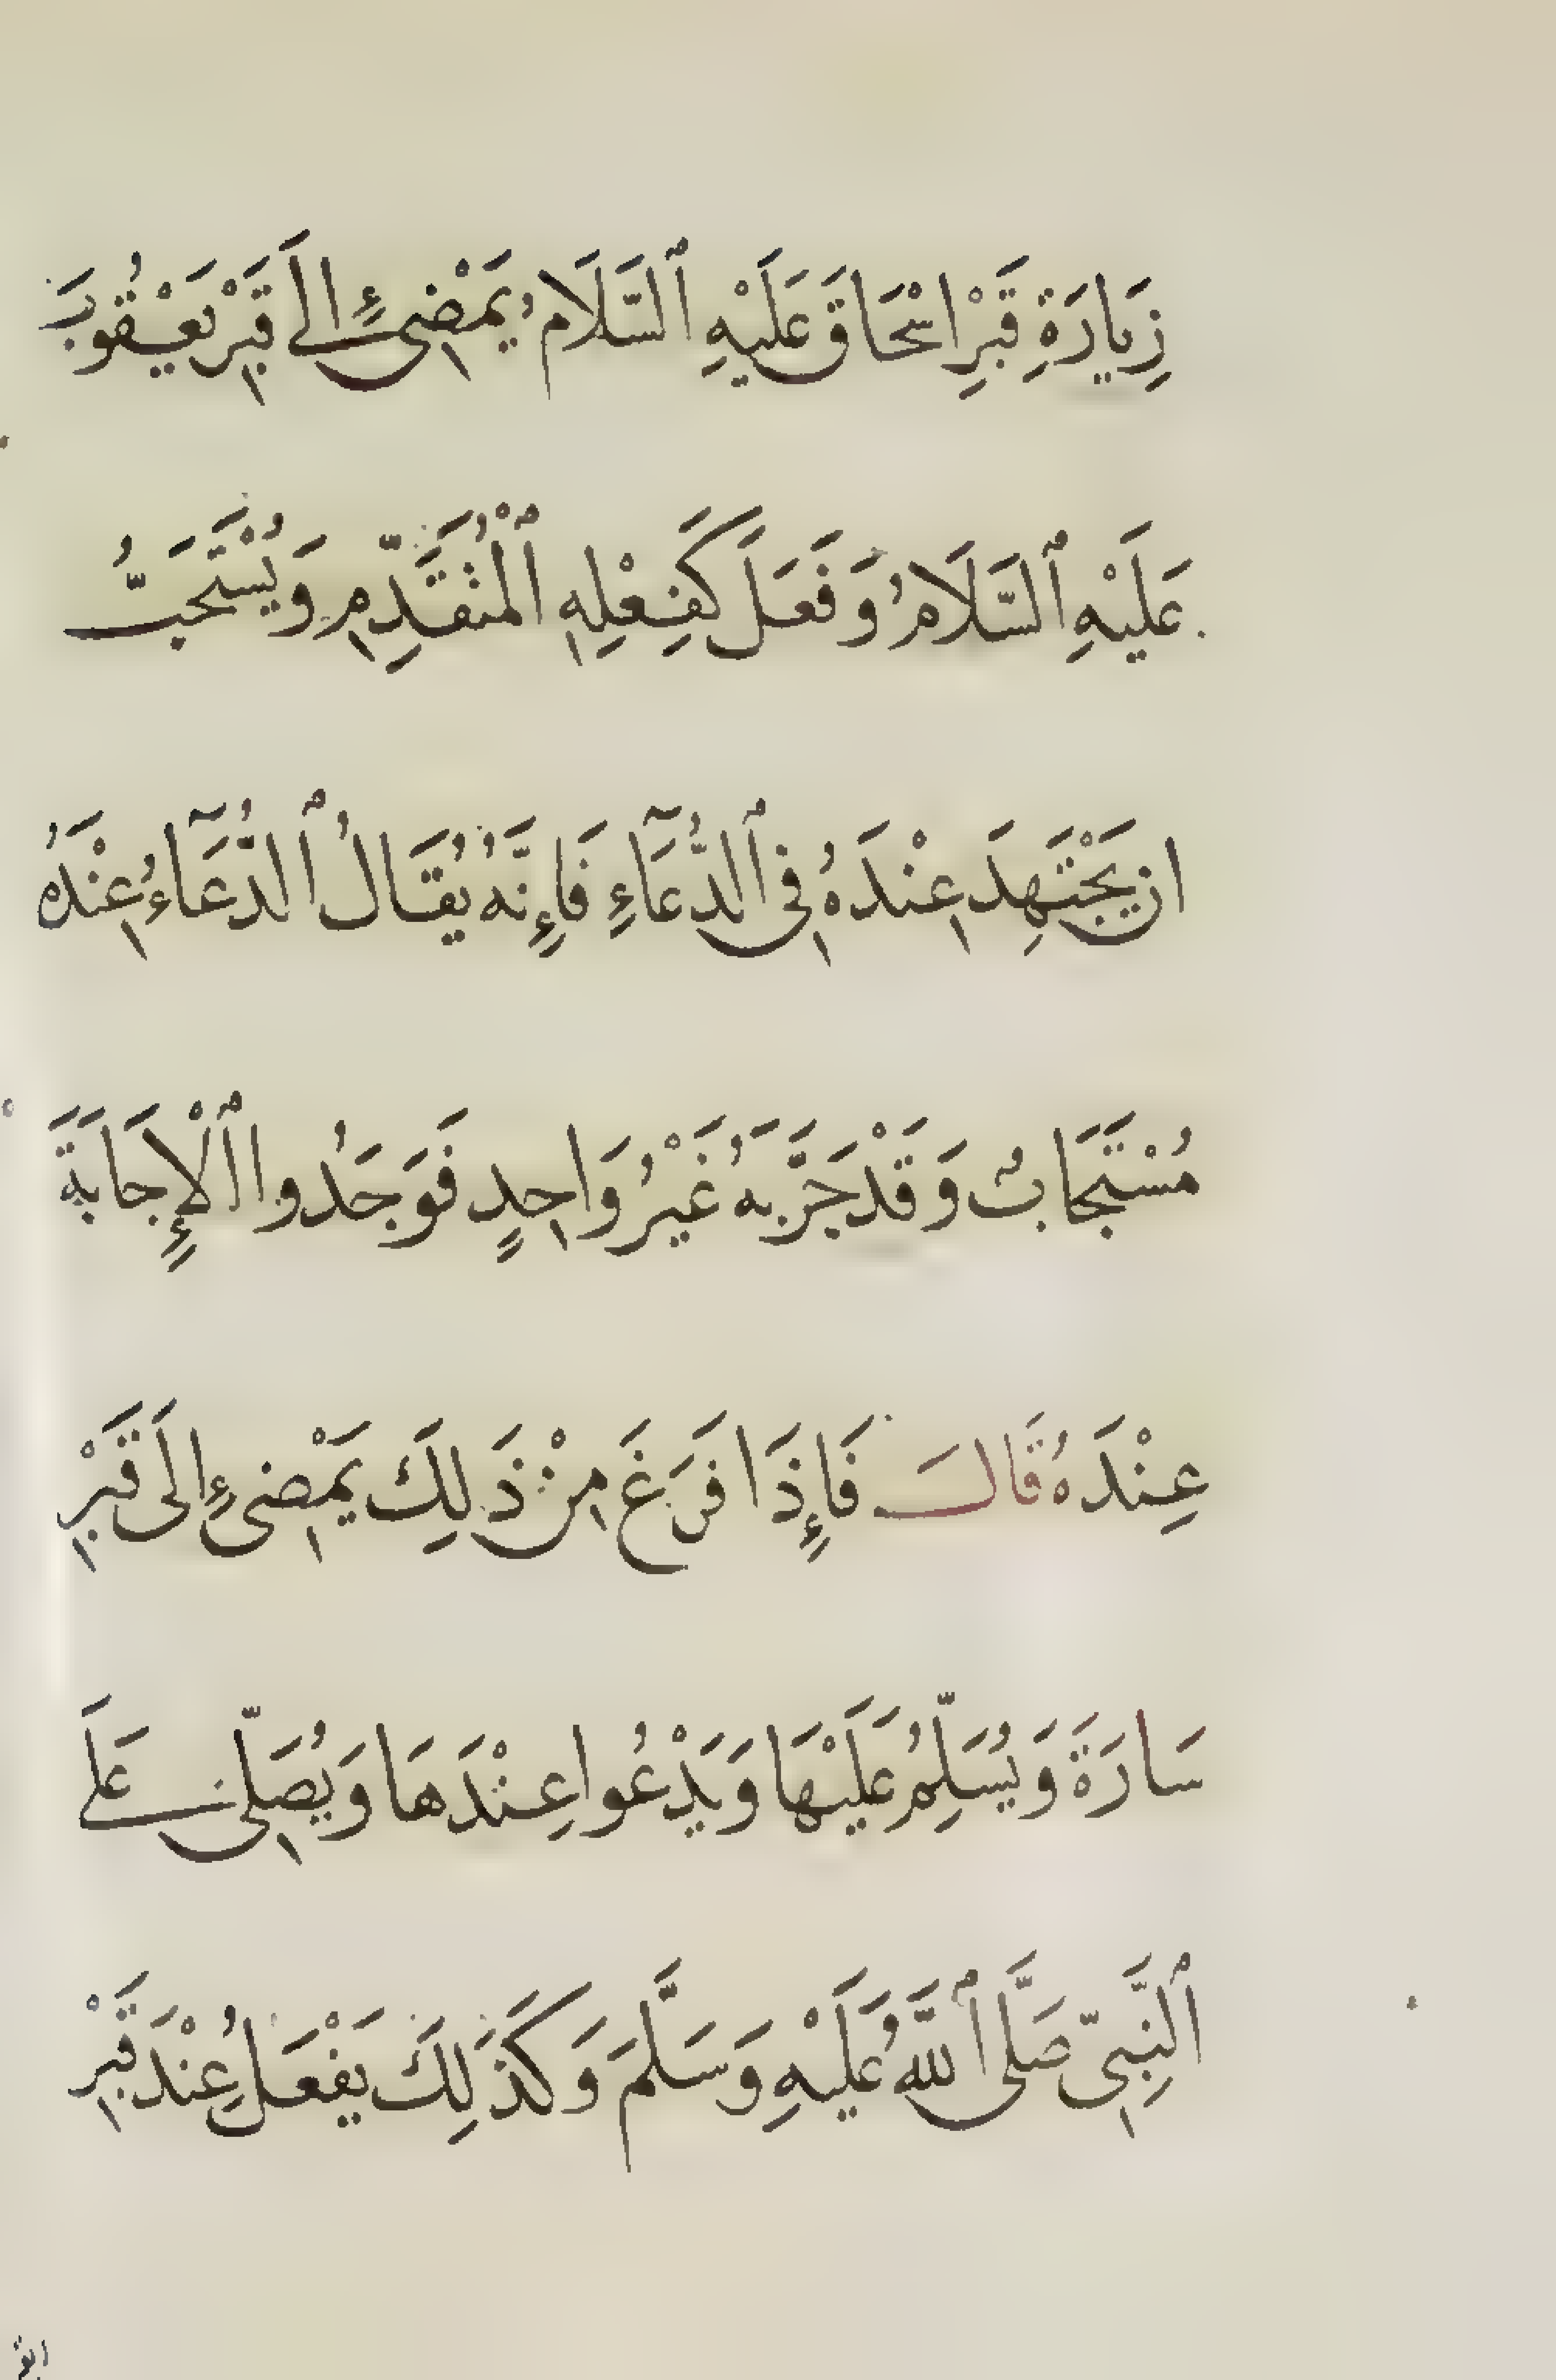 زِيَارَةِ قَبْرِ اسْحَاقَ عَلَيْهِ ٱلسَّلَامُ يَمْضِىءُ إِلَى قَبْرِ يَعْقُوبَ
عَلَيْهِ ٱلسَّلَامُ وَفَعَلَ كَفِعْلِهِ ٱلْمُتَقَدِّمِ وَيُسْتَحَبُّ
ان يَجْتَهِدَ عِنْدَهُ فِى ٱلدُّعَآءِ فَإِنَّهُ يُقَالُ ٱلدُّعَآءُ عِنْدَهُ
مُسْتَجَابٌ وَقَدْ جَرَّبَهُ غَيْرُ وَاحِدٍ فَوَجَدُوا ٱلْإِجَابَةَ
عِنْدَهُ قَالَ فَإِذَا فَرَغَ مِنْ ذَلِكَ يَمْضِىءُ إِلَى قَبْرِ
سَارَةَ وَيُسَلِّمُ عَلَيْهَا وَيَدْعُوا عِنْدَهَا وَيُصَلِّى عَلَى
ٱلنَّبِىِّ صَلَّى ٱللَّهُ عَلَيْهِ وَسَلَّمَ وَكَذَلِكَ يَفْعَلُ عِنْدَ قَبْرِ